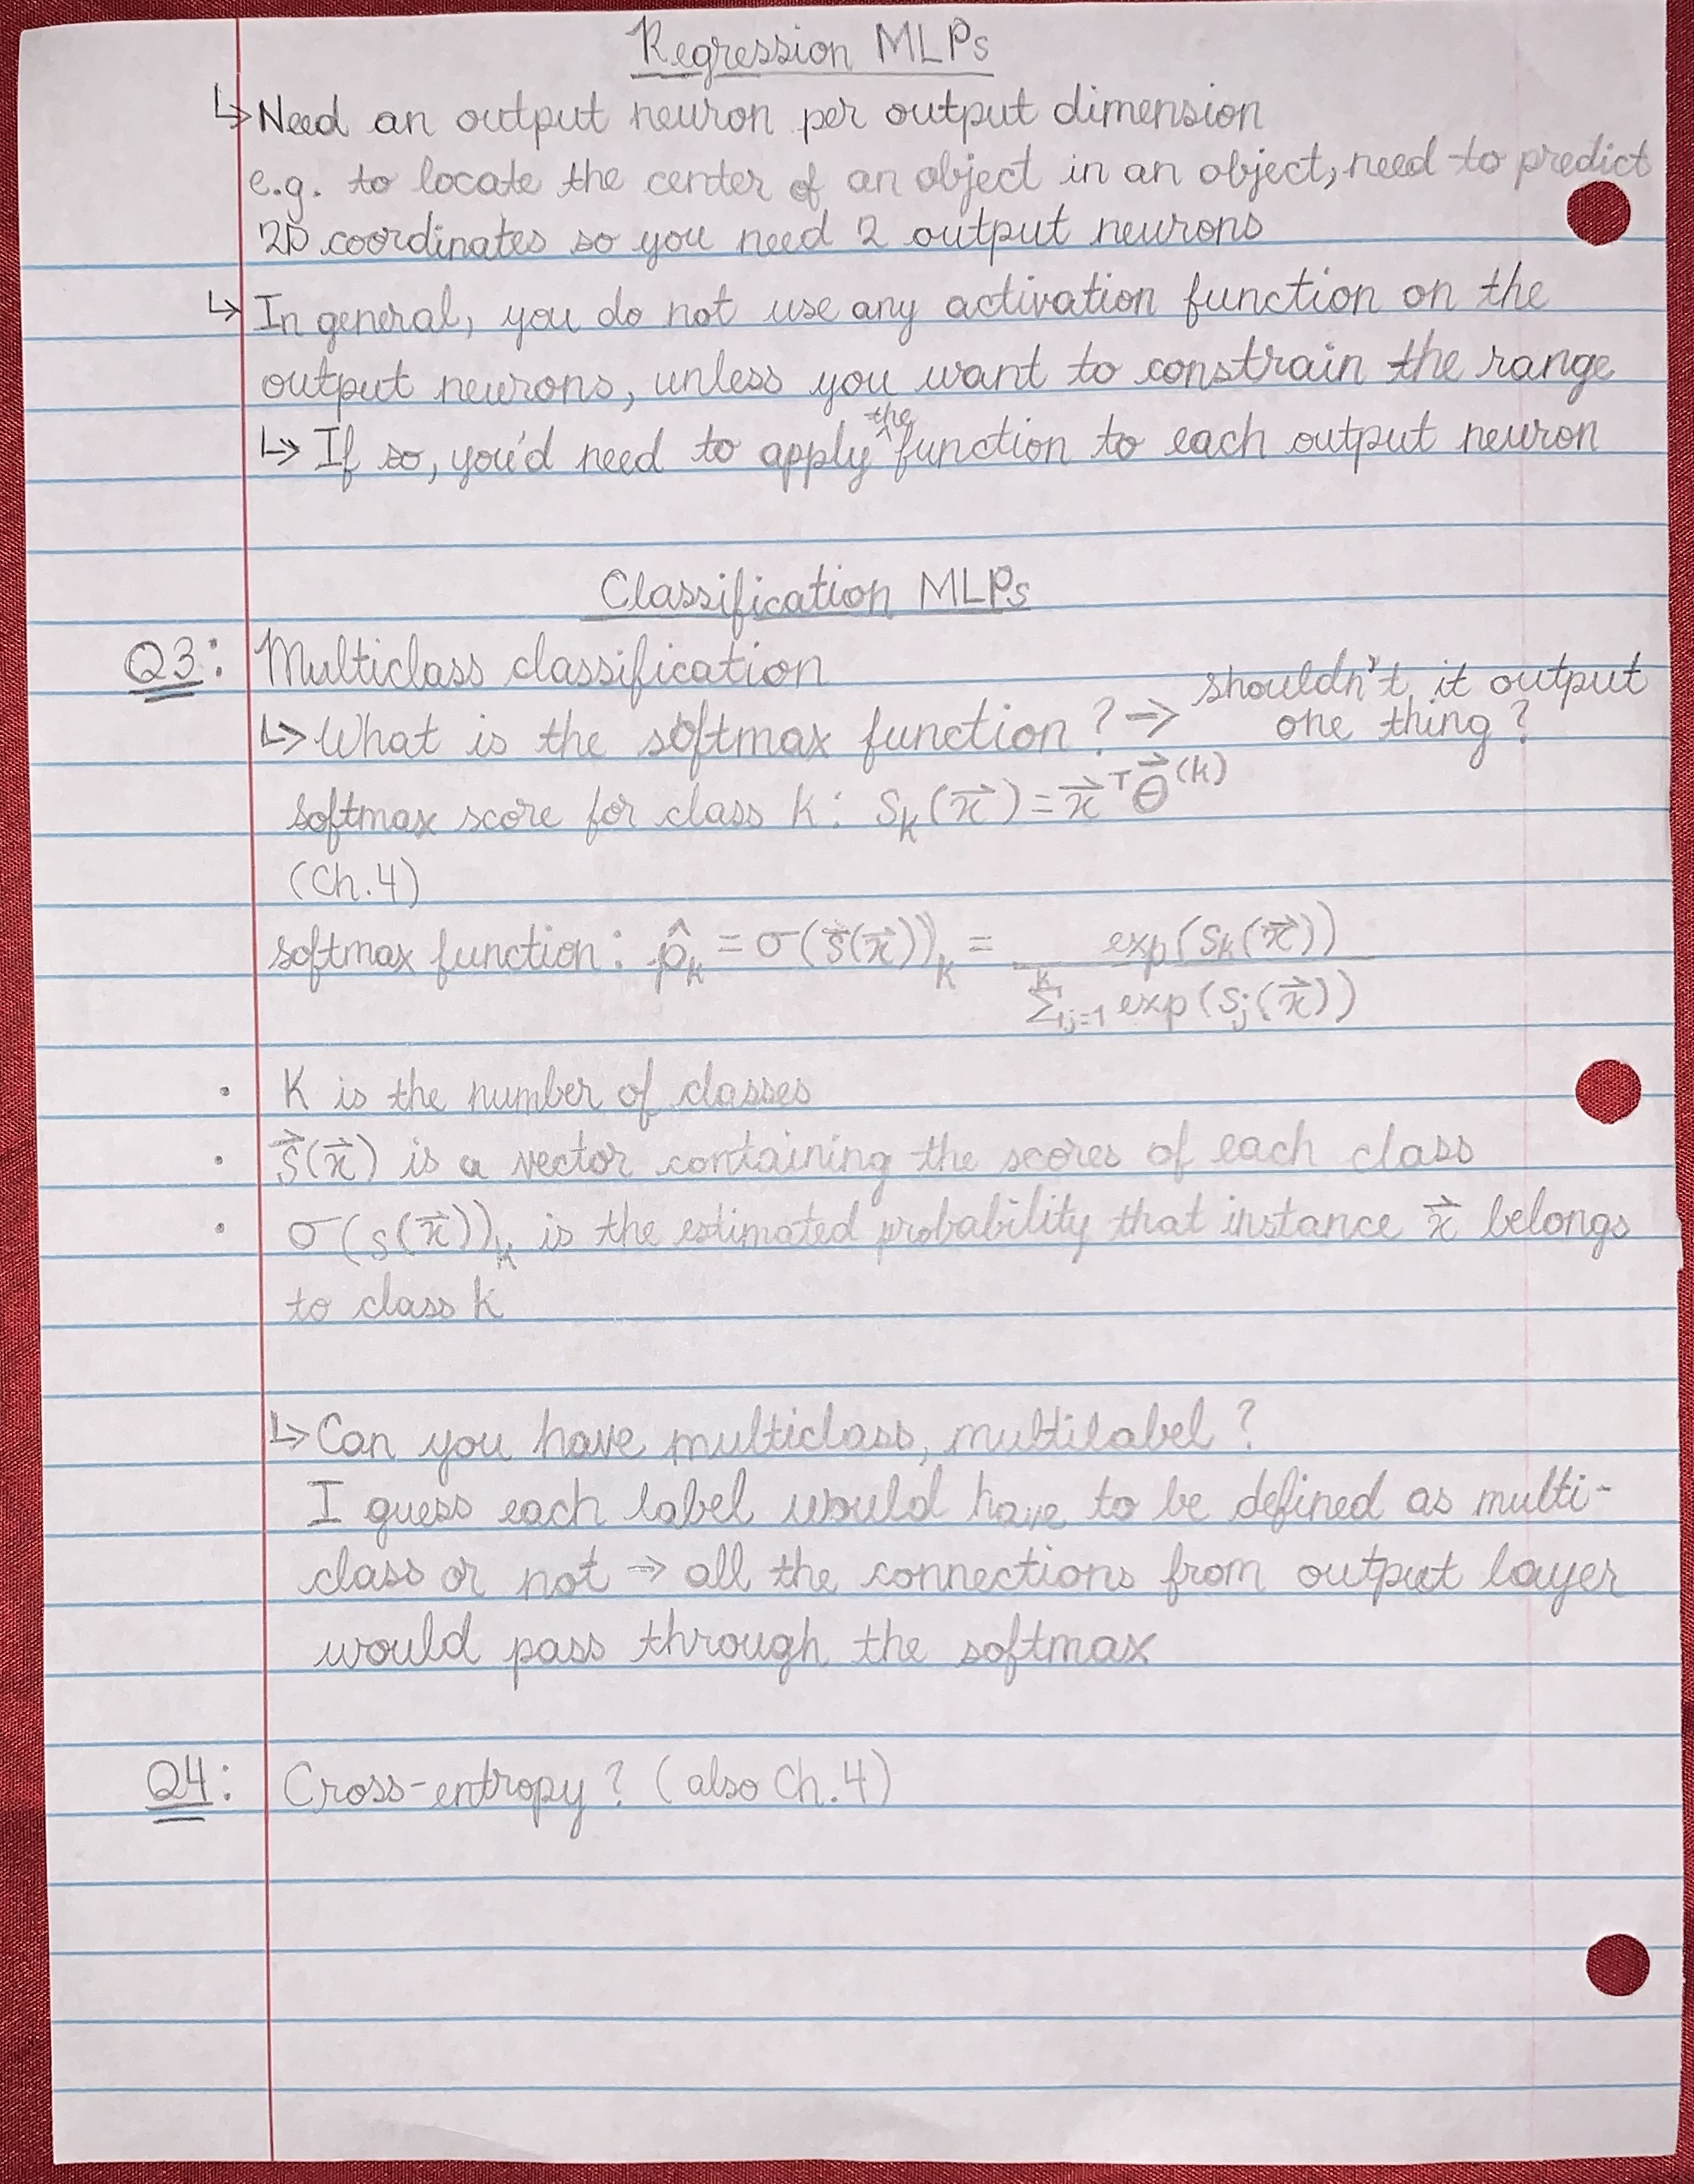 Regression MLPs
↳ Need an output neuron per output dimension
e.g. to locate the center of an object in an object, need to predict
2D coordinates so you need 2 output neurons
↳ In general, you do not use any activation function on the
output neurons, unless you want to constrain the range
↳ If so, you'd need to apply the function to each output neuron
Classification MLPs
Q3: Multiclass classification
↳ What is the softmax function? → shouldn't it output
one thing?
softmax score for class k: S_k(x⃗) = x⃗^T θ⃗^(k)
(Ch.4)
softmax function: p̂_k = σ(s⃗(x⃗))_k = exp(S_k(x⃗)) / Σ^K_{j=1} exp(S_j(x⃗))
• K is the number of classes
• s⃗(x⃗) is a vector containing the scores of each class
• σ(s(x⃗))_k is the estimated probability that instance x⃗ belongs
to class k
↳ Can you have multiclass, multilabel?
I guess each label would have to be defined as multi-
class or not → all the connections from output layer
would pass through the softmax
Q4: Cross-entropy? (also Ch.4)